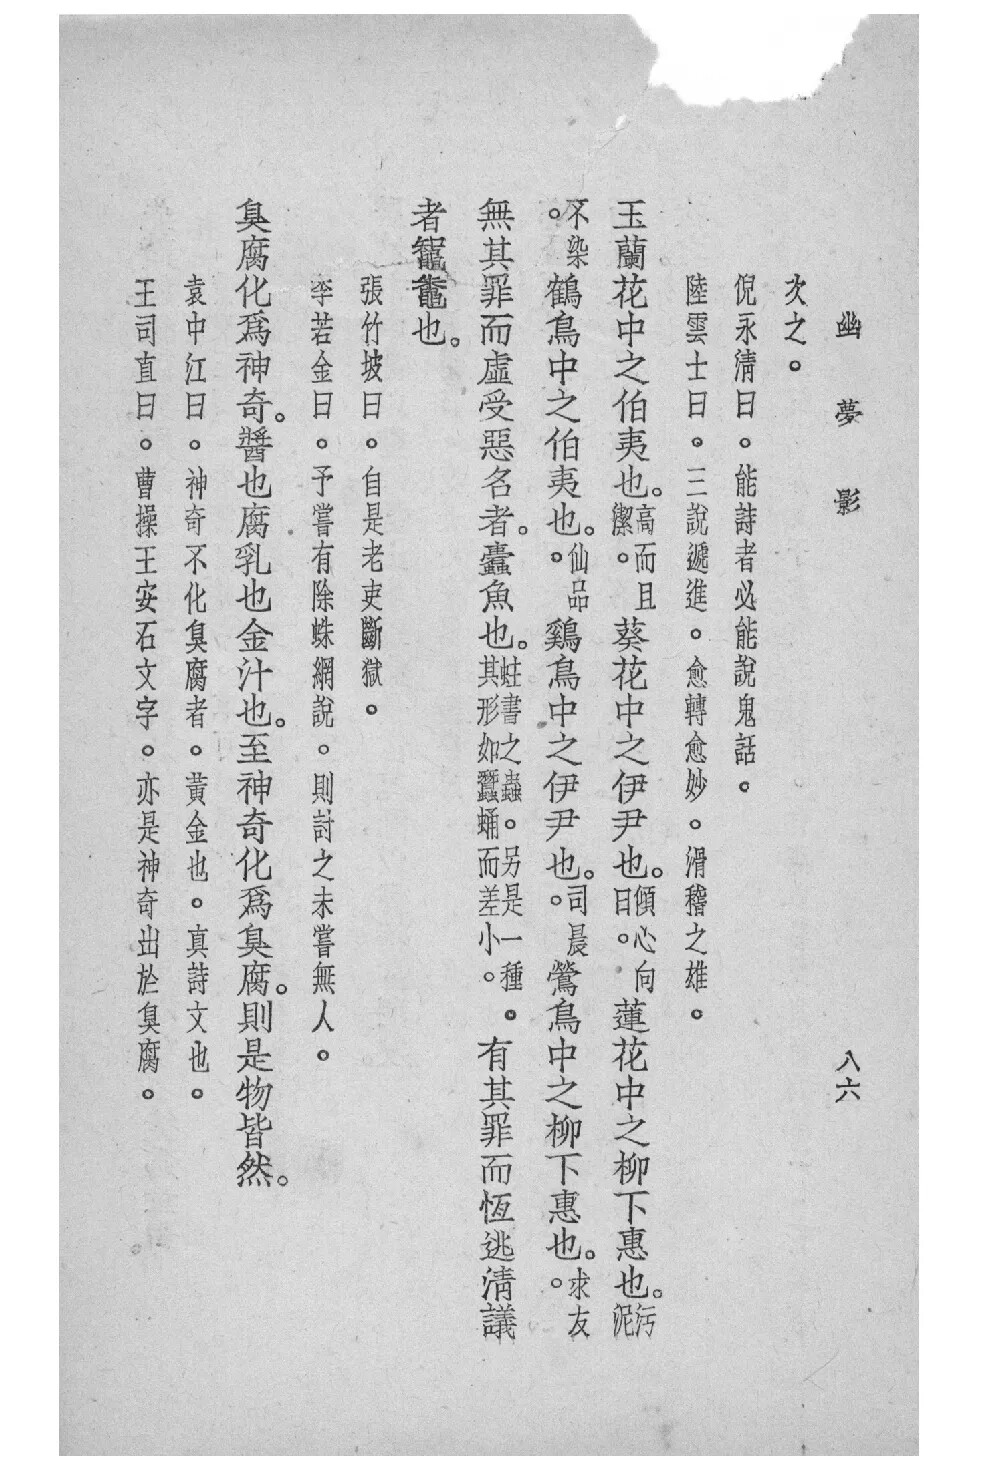 幽夢影 八六
次之。
倪永清曰。能詩者必能說鬼話。
陸雲士曰。三說遞進。愈轉愈妙。滑稽之雄。
玉蘭花中之伯夷也。高而且潔。葵花中之伊尹也。傾心向日。蓮花中之柳下惠也。污泥
不染。鶴鳥中之伯夷也。仙品。鷄鳥中之伊尹也。司晨。鶯鳥中之柳下惠也。求友。
無其罪而虛受惡名者。蠹魚也。蛀書之蟲。另是一種。其形如蠶蛹而差小。有其罪而恆逃清議
者鼅鼄也。
張竹坡曰。自是老吏斷獄。
李若金曰。予嘗有除蛛網說。則討之未嘗無人。
臭腐化爲神奇。醬也腐乳也金汁也。至神奇化爲臭腐。則是物皆然。
袁中江曰。神奇不化臭腐者。黃金也。真詩文也。
王司直曰。曹操王安石文字。亦是神奇出於臭腐。